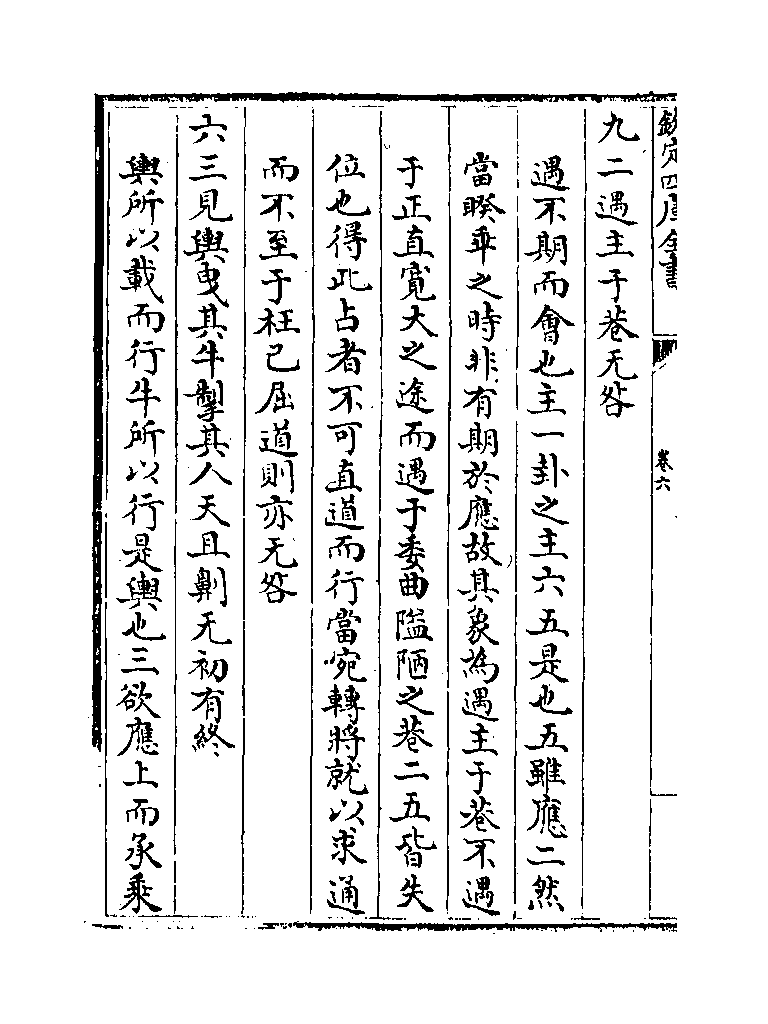 欽定四庫全書
卷六
九二遇主于巷无咎
遇不期而會也主一卦之主六五是也五雖應二然
當睽乖之時非有期於應故其象為遇主于巷不遇
于正直寛大之途而遇于委曲隘陋之巷二五皆失
位也得此占者不可直道而行當宛轉將就以求通
而不至于枉己屈道則亦无咎
六三見輿曵其牛掣其人天且劓无初有終
輿所以載而行牛所以行是輿也三欲應上而承乘